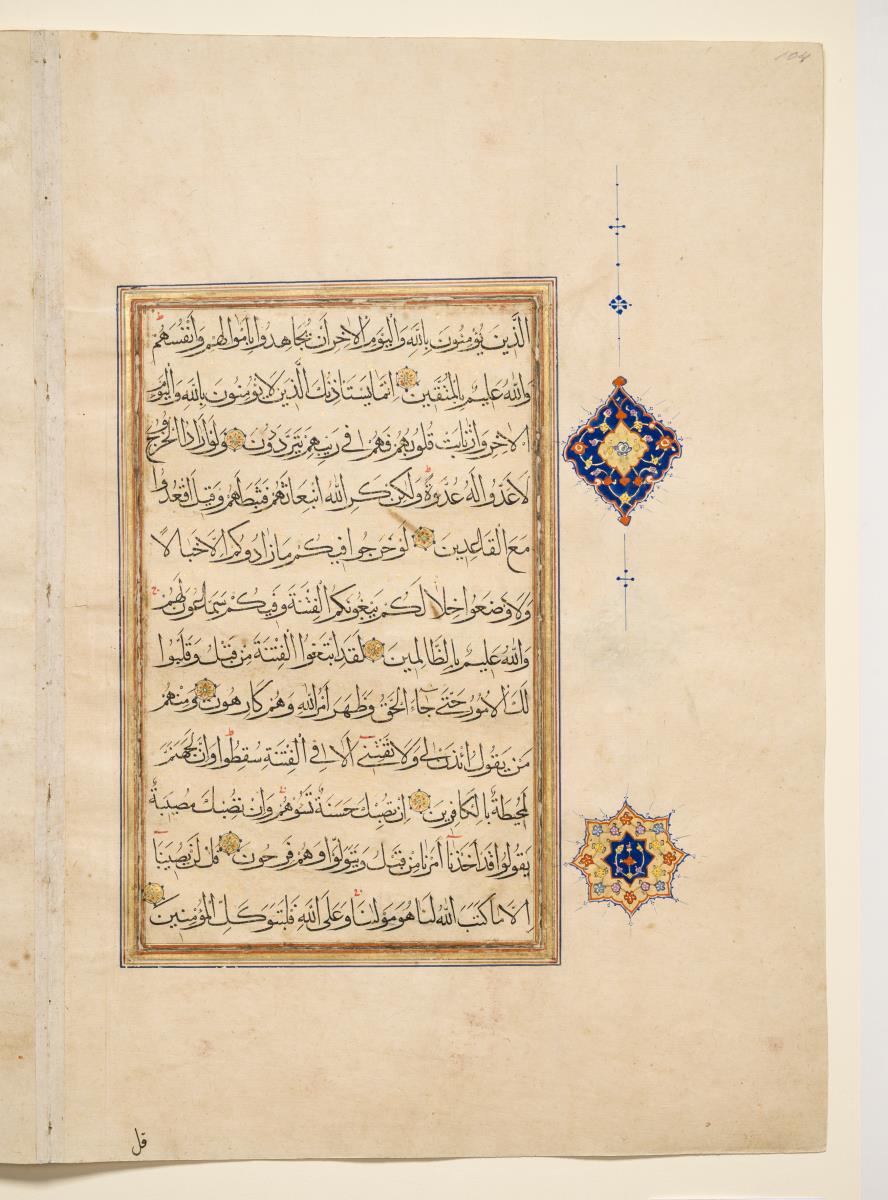 104
الذين يؤمنون بالله واليوم الاخر ان يجاهدوا باموالهم وانفسهم
والله عليم بالمتقين انما يستاذنك الذين لا يؤمنون بالله واليوم
الاخر وارتابت قلوبهم فهم في ريبهم يترددون ولو ارادوا الخروج
لاعدوا له عدة ولكن كره الله انبعاثهم فثبطهم وقيل اقعدوا
مع القاعدين لو خرجوا فيكم ما زادوكم الا خبالا
ولاوضعوا خلالكم يبغونكم الفتنة وفيكم سماعون لهم
والله عليم بالظالمين لقد ابتغوا الفتنة من قبل وقلبوا
لك الامور حتى جاء الحق وظهر امر الله وهم كارهون ومنهم
من يقول ائذن لي ولا تفتني الا في الفتنة سقطوا وان جهنم
لمحيطة بالكافرين ان تصبك حسنة تسؤهم وان تصبك مصيبة
يقولوا قد اخذنا امرنا من قبل ويتولوا وهم فرحون قل لن يصيبنا
الا ما كتب الله لنا هو مولنا وعلى الله فليتوكل المؤمنون
قل